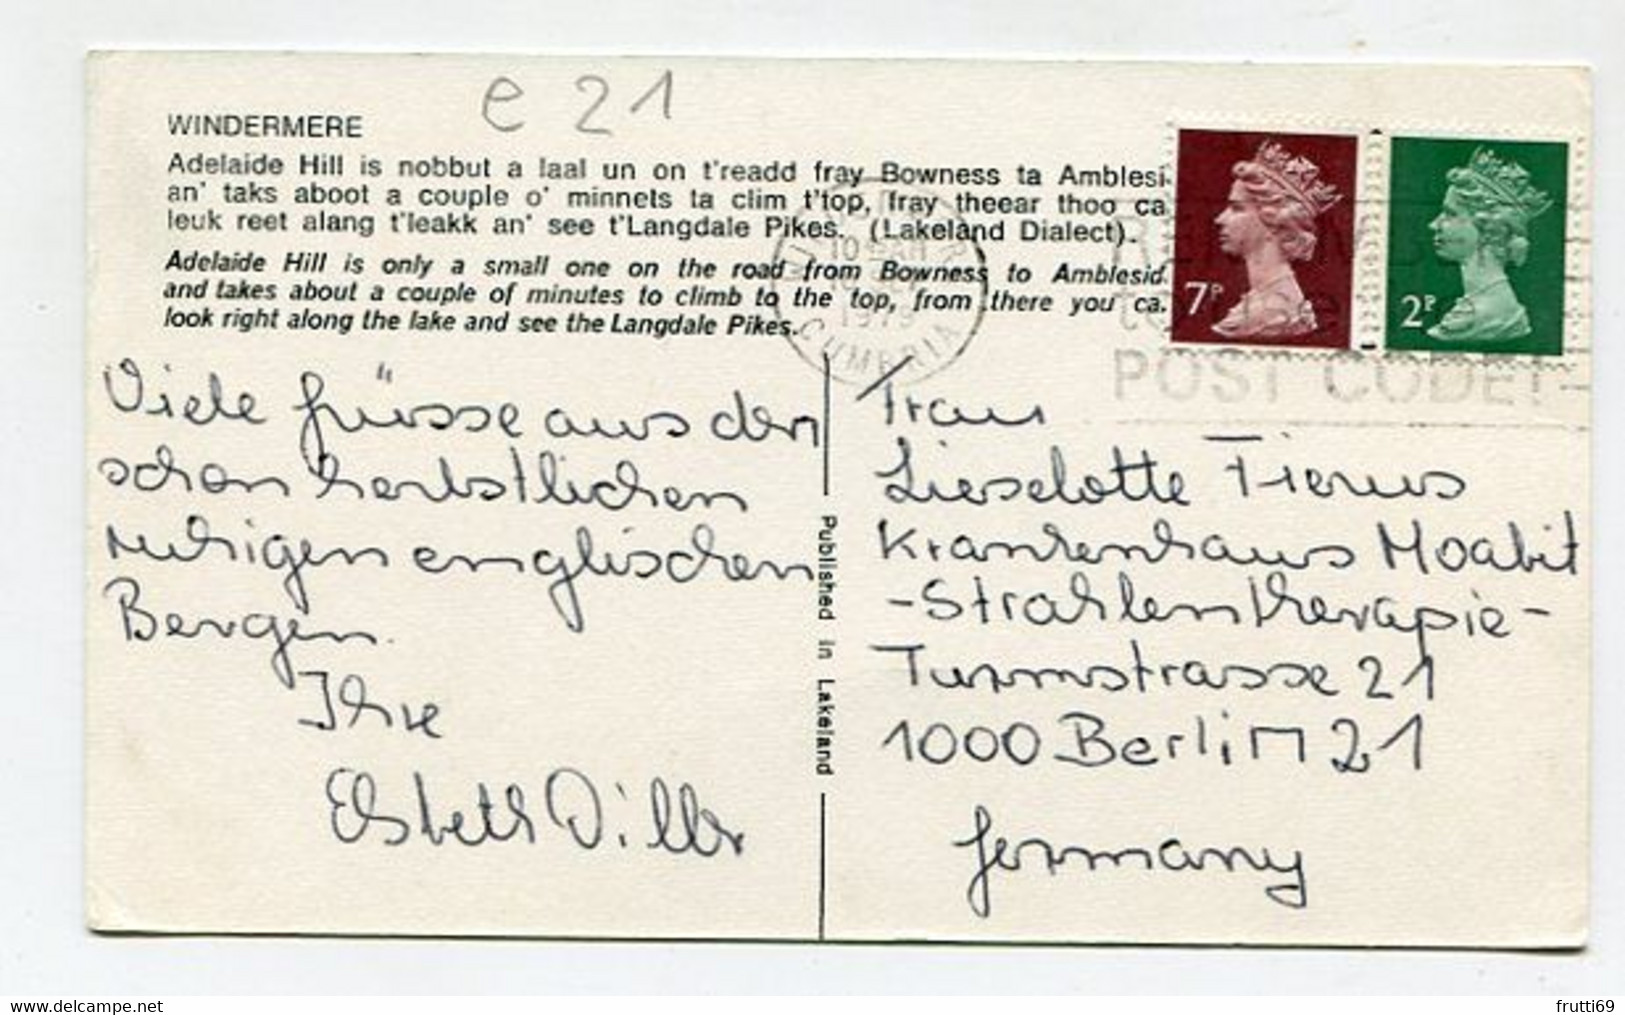 e 21
WINDERMERE
Adelaide Hill is nobbut a laal un on t'readd fray Bowness ta Amblesi
an' taks aboot a couple o' minnets ta clim t'top, fray theear thoo ca
leuk reet alang t'leakk an' see t'Langdale Pikes. (Lakeland Dialect).
Adelaide Hill is only a small one on the road from Bowness to Amblesid
and takes about a couple of minutes to climb to the top, from there you ca
look right along the lake and see the Langdale Pikes.
7P
2P
CUMBRIA
POST CODE!
Viele Grüsse aus den
schon herbstlichen
ruhigen englischen
Bergen.
Ihre
Elsbeth Diller
Published in Lakeland
Frau
Lieselotte Fierus
Krankenhaus Moabit
-Strahlentherapie-
Turmstrasse 21
1000 Berlin 21
Germany
frutti69